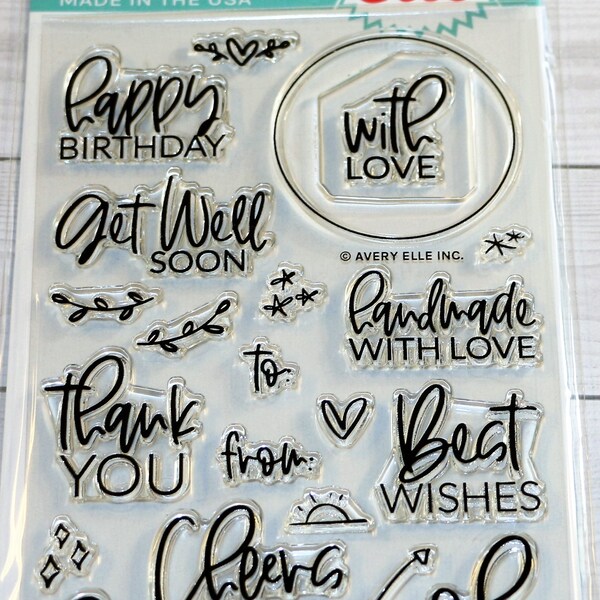 MADE IN THE USA
happy
BIRTHDAY
with
LOVE
get Well
SOON
© AVERY ELLE INC.
handmade
WITH LOVE
to:
thank
YOU
from:
Best
WISHES
Cheers